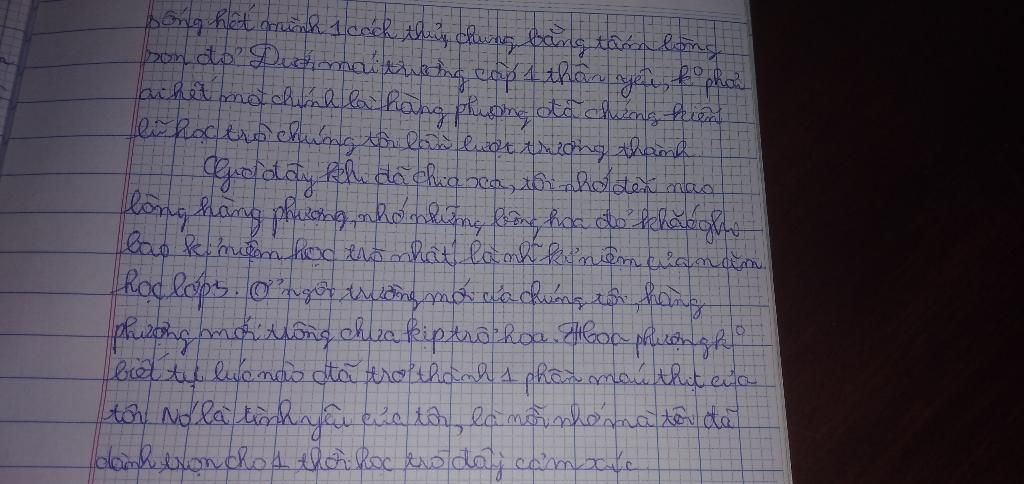 sống hết mình 1 cách thủy chung bằng tấm lòng
son đỏ. Dưới mái trường cấp 1 thân yêu, k° phải
ai hết mà chính là hàng phượng đã chứng kiến
lũ học trò chúng tôi lần lượt trưởng thành
Giờ đây khi đã chia xa, tôi nhớ đến nao
lòng hàng phượng, nhớ những bông hoa đỏ khắc ghi
bao kỉ niệm học trò nhất là nh~ kỉ niệm của năm
học lớp 5. Ở ngôi trường mới của chúng tôi, hàng
phượng mới trồng chưa kịp trổ hoa. Hoa phượng k°
biết tự lúc nào đã trở thành 1 phần máu thịt của
tôi. Nó là tình yêu của tôi, là nỗi nhớ mà tôi đã
dành trọn cho 1 thời học trò đầy cảm xúc